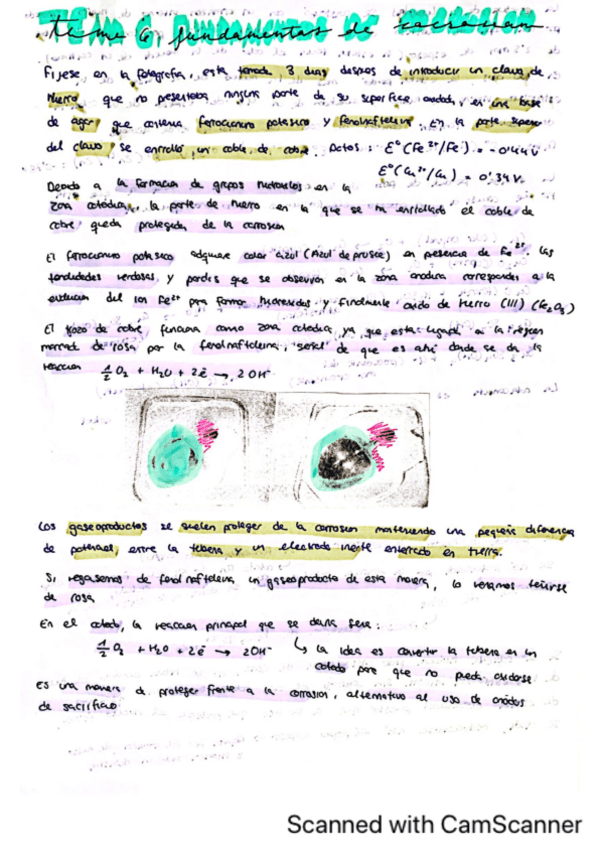 Tema 6. fundamentos de corrosion
Fijese, en la fotografia, esta tomada 3 dias despues de introducir un clavo de
hierro que no presentaba ninguna parte de su superficie oxidada, en una base
de agar que contenia ferrocianuro potasico y fenolftaleina. En la parte superior
del clavo se enrolló un cable de cobre. Datos: Eº(Fe²⁺/Fe) = -0'44V
Eº(Cu²⁺/Cu) = 0'34V.
Debido a la formacion de grupos hidroxilos en la
zona catodica, la parte de hierro en la que se ha enrollado el cable de
cobre queda protegida de la corrosion
El ferrocianuro potasico adquiere color azul (Azul de prusia) en presencia de Fe²⁺ las
tonalidades verdosas y pardas que se observan en la zona anodica corresponden a la
evolucion del ion Fe²⁺ para formar hidroxidos y finalmente oxido de hierro (III) (Fe₂O₃)
El trozo de cobre funciona como zona catodica ya que esta ligada a la region
marcada de rosa por la fenolnaftaleina, señal de que es ahi donde se da la
reaccion ½O₂ + H₂O + 2e⁻ → 2OH⁻
Los gaseoproductos se suelen proteger de la corrosion manteniendo una pequeña diferencia
de potencial, entre la tuberia y un electrodo inerte enterrado en tierra.
Si regasemos de fenolnaftaleina, un gaseoproducto de esta manera, lo veriamos teñirse
de rosa
En el catodo, la reaccion principal que se daria sera:
½O₂ + H₂O + 2e⁻ → 2OH⁻ ↳ La idea es convertir la tuberia en un
catodo para que no pueda oxidarse
Es una manera de proteger frente a la corrosion, alternativo al uso de anodos
de sacrificio
Scanned with CamScanner